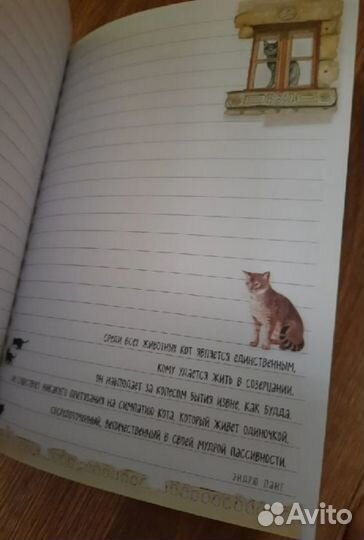 среди всех животных кот является единственным,
кому удается жить в созерцании.
он наблюдает за колесом бытия извне, как будда.
притязания на симпатию кота, который живет одиночкой,
сосредоточенный, величественный в своей мудрой пассивности.
эндрю ланг
Avito